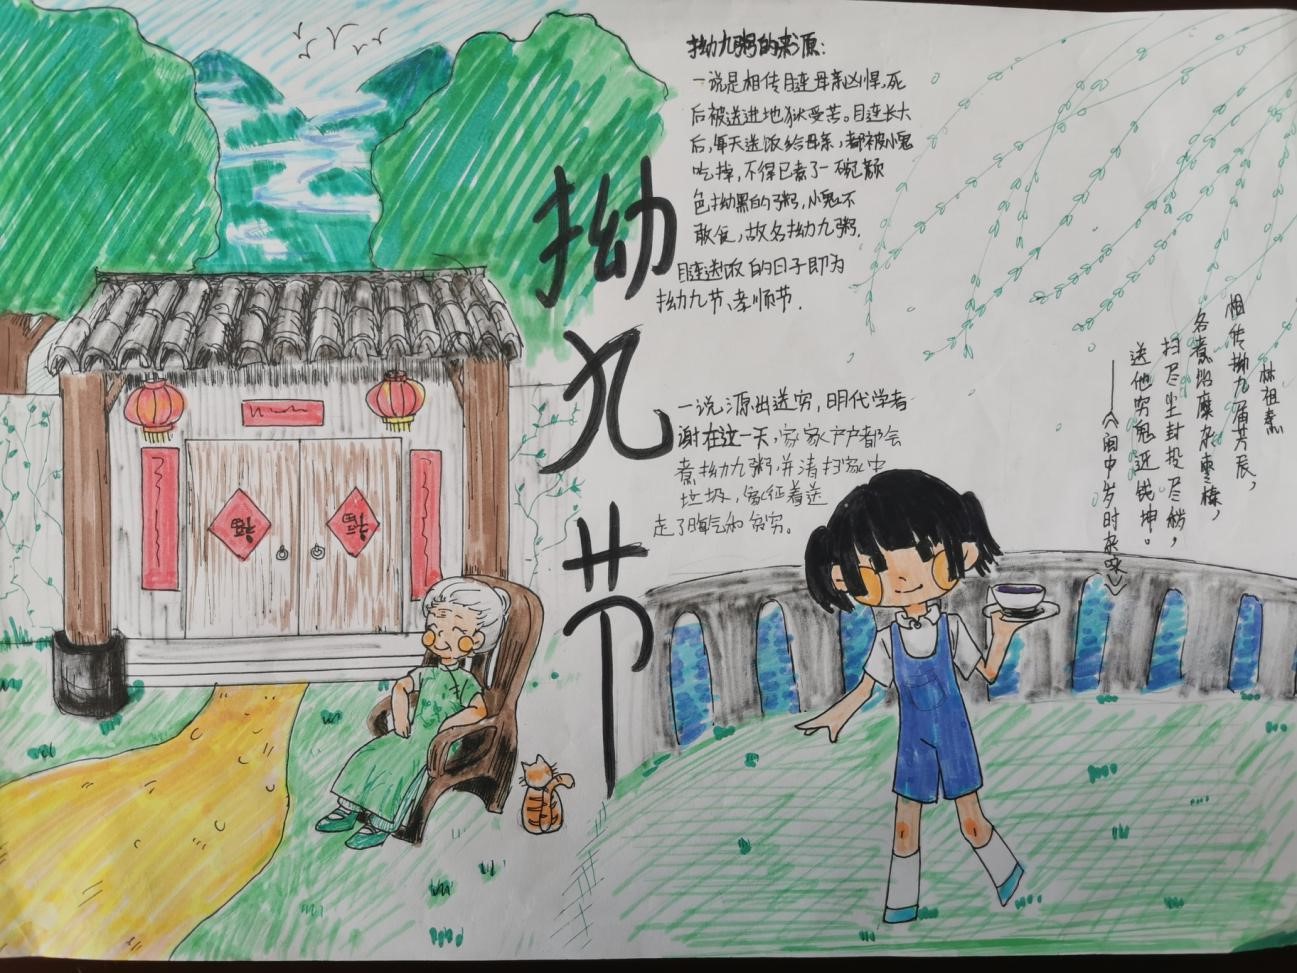 拗九节
拗九粥的来源：
一说是相传目连母亲凶悍,死
后被送进地狱受苦。目连长大
后,每天送饭给母亲,都被小鬼
吃掉,不得已煮了一碗颜
色拗黑的粥,小鬼不
敢食,故名拗九粥.
目连送饭的日子即为
拗九节、孝顺节.
一说源出送穷,明代学者
谢在这一天,家家户户都会
煮拗九粥,并清扫家中
垃圾,象征着送
走了晦气和贫穷。
林祖焘
相传拗九届芳辰,
各煮饴糜杂枣榛,
扫尽尘封投尽秽,
送他穷鬼迓钱坤。
——《闽中岁时杂咏》
福
福